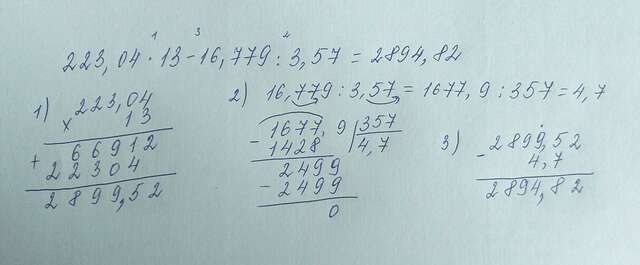 1 3 2
223,04 · 13 - 16,779 : 3,57 = 2894,82
1) 223,04
× 13
66912
+ 22304
2899,52
2) 16,779 : 3,57 = 1677,9 : 357 = 4,7
- 1677,9 | 357
1428 | 4,7
2499
- 2499
0
3) 2899,52
- 4,7
2894,82